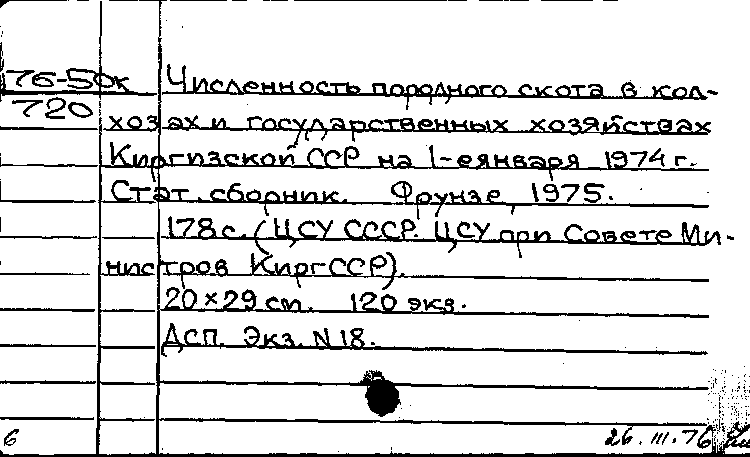 76-50к Численность породного скота в кол-
720 хозах и государственных хозяйствах
Киргизской ССР на 1-е января 1974 г.
Стат. сборник. Фрунзе, 1975.
178 с. (ЦСУ СССР. ЦСУ при Совете Ми-
нистров КиргССР).
20×29 см. 120 экз.
Дсп. Экз. N 18.
6 26.III.76